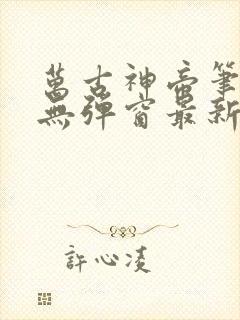 萬古神帝筆
無彈窗最新
許心凌